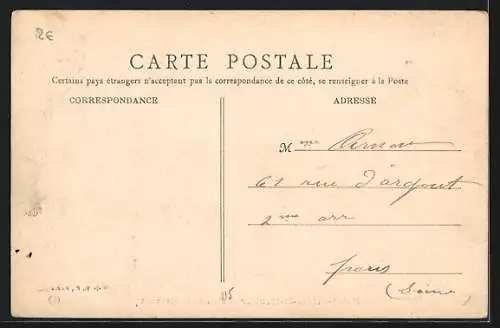 2E
CARTE POSTALE
Certains pays étrangers n'acceptant pas la correspondance de ce côté, se renseigner à la Poste
CORRESPONDANCE
ADRESSE
M
61 rue d'argout
2me arr
paris
(Seine)